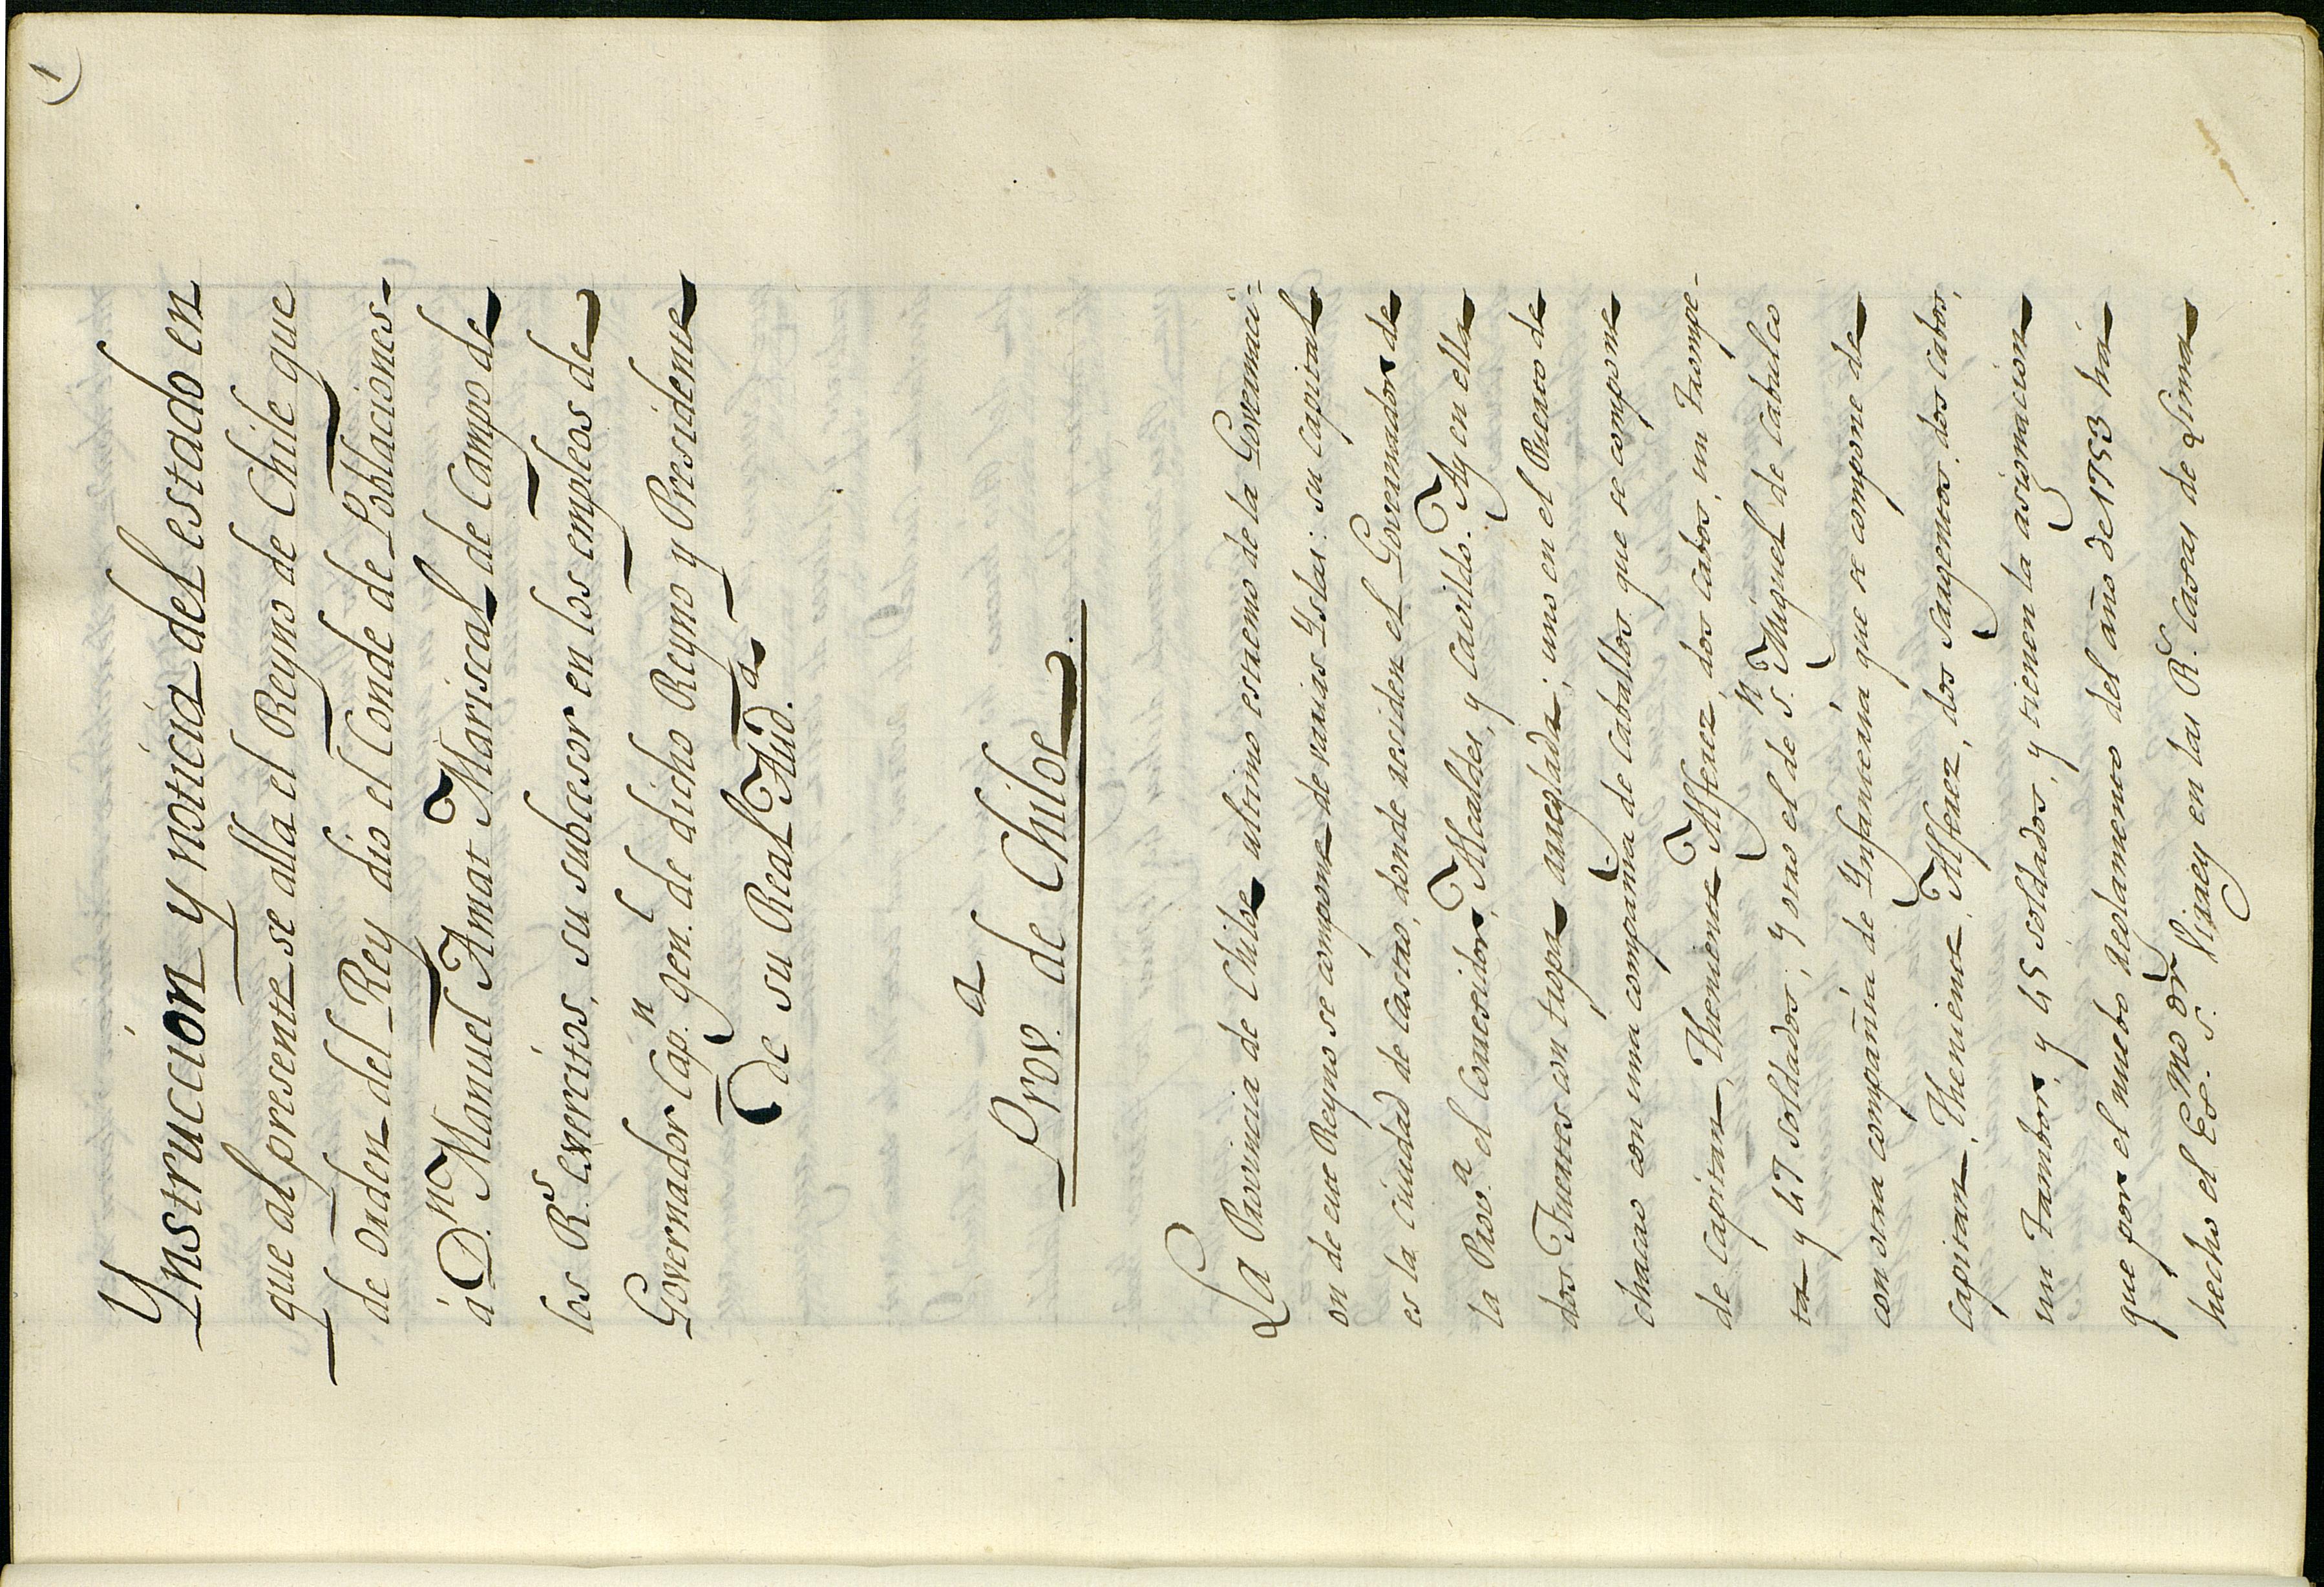 1
Ynstruccion y noticia del estado en
que al presente se alla el Reyno de Chile que
de orden del Rey dio el Conde de Poblaciones
á D.n Manuel Amat Mariscal de Campo de
los R.s Exercitos, su subcesor en los empleos de
Governador Cap.n gen.l de dicho Reyno y Presidente
de su Real Aud.a
Prov.a de Chiloe
La Provincia de Chiloe ultimo estremo de la Governaci=
on de este Reyno se compone de varias Yslas: su capital
es la ciudad de Castro, donde reciden el Governador de
la Prov.a el Correxidor, Alcaldes, y Cavildo. Ay en ella
dos Fuertes con tropa arreglada; uno en el Puerto de
chacao con una compañia de Caballos que se compone
de Capitan, Theniente Alferez, dos Cabos, un Trompe-
ta y 47 soldados; y otro el de S.n Miguel de Cabulco
con otra compañia de Ynfanteria que se compone de
Capitan, Theniente, Alferez, dos Sargentos, dos Cabos,
un Tambor, y 45 soldados, y tienen la asignacion
que por el nuebo reglamento del año de 1753 há
hecho el Ex.mo S.or Virrey en las R.s Caxas de Lima